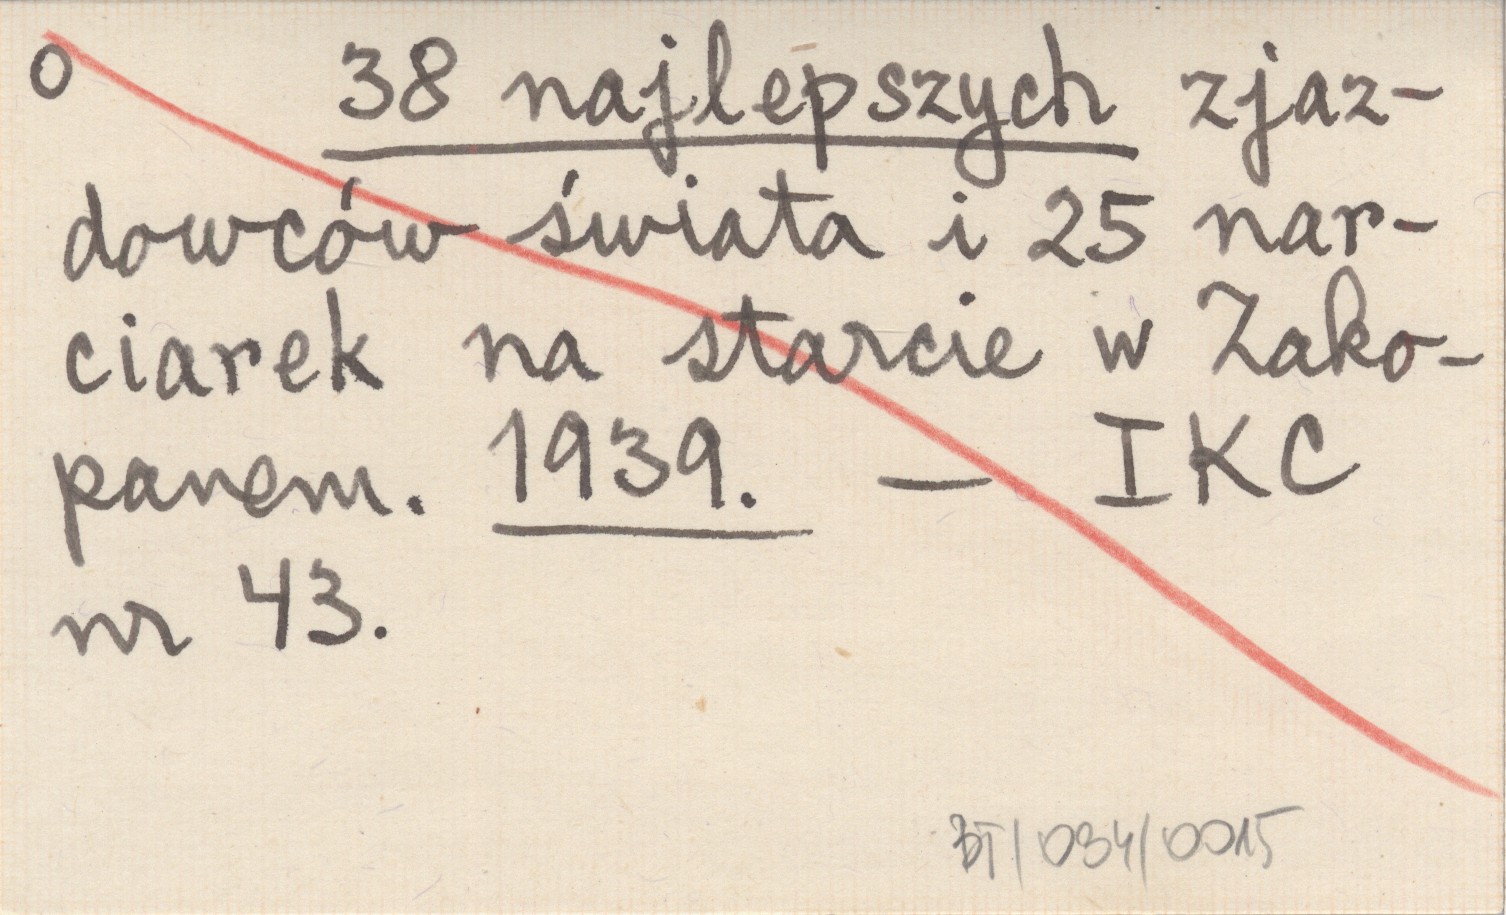 o 38 najlepszych zjaz-
dowców świata i 25 nar-
ciarek na starcie w Zako-
panem. 1939. — IKC
nr 43.
BT/034/0015